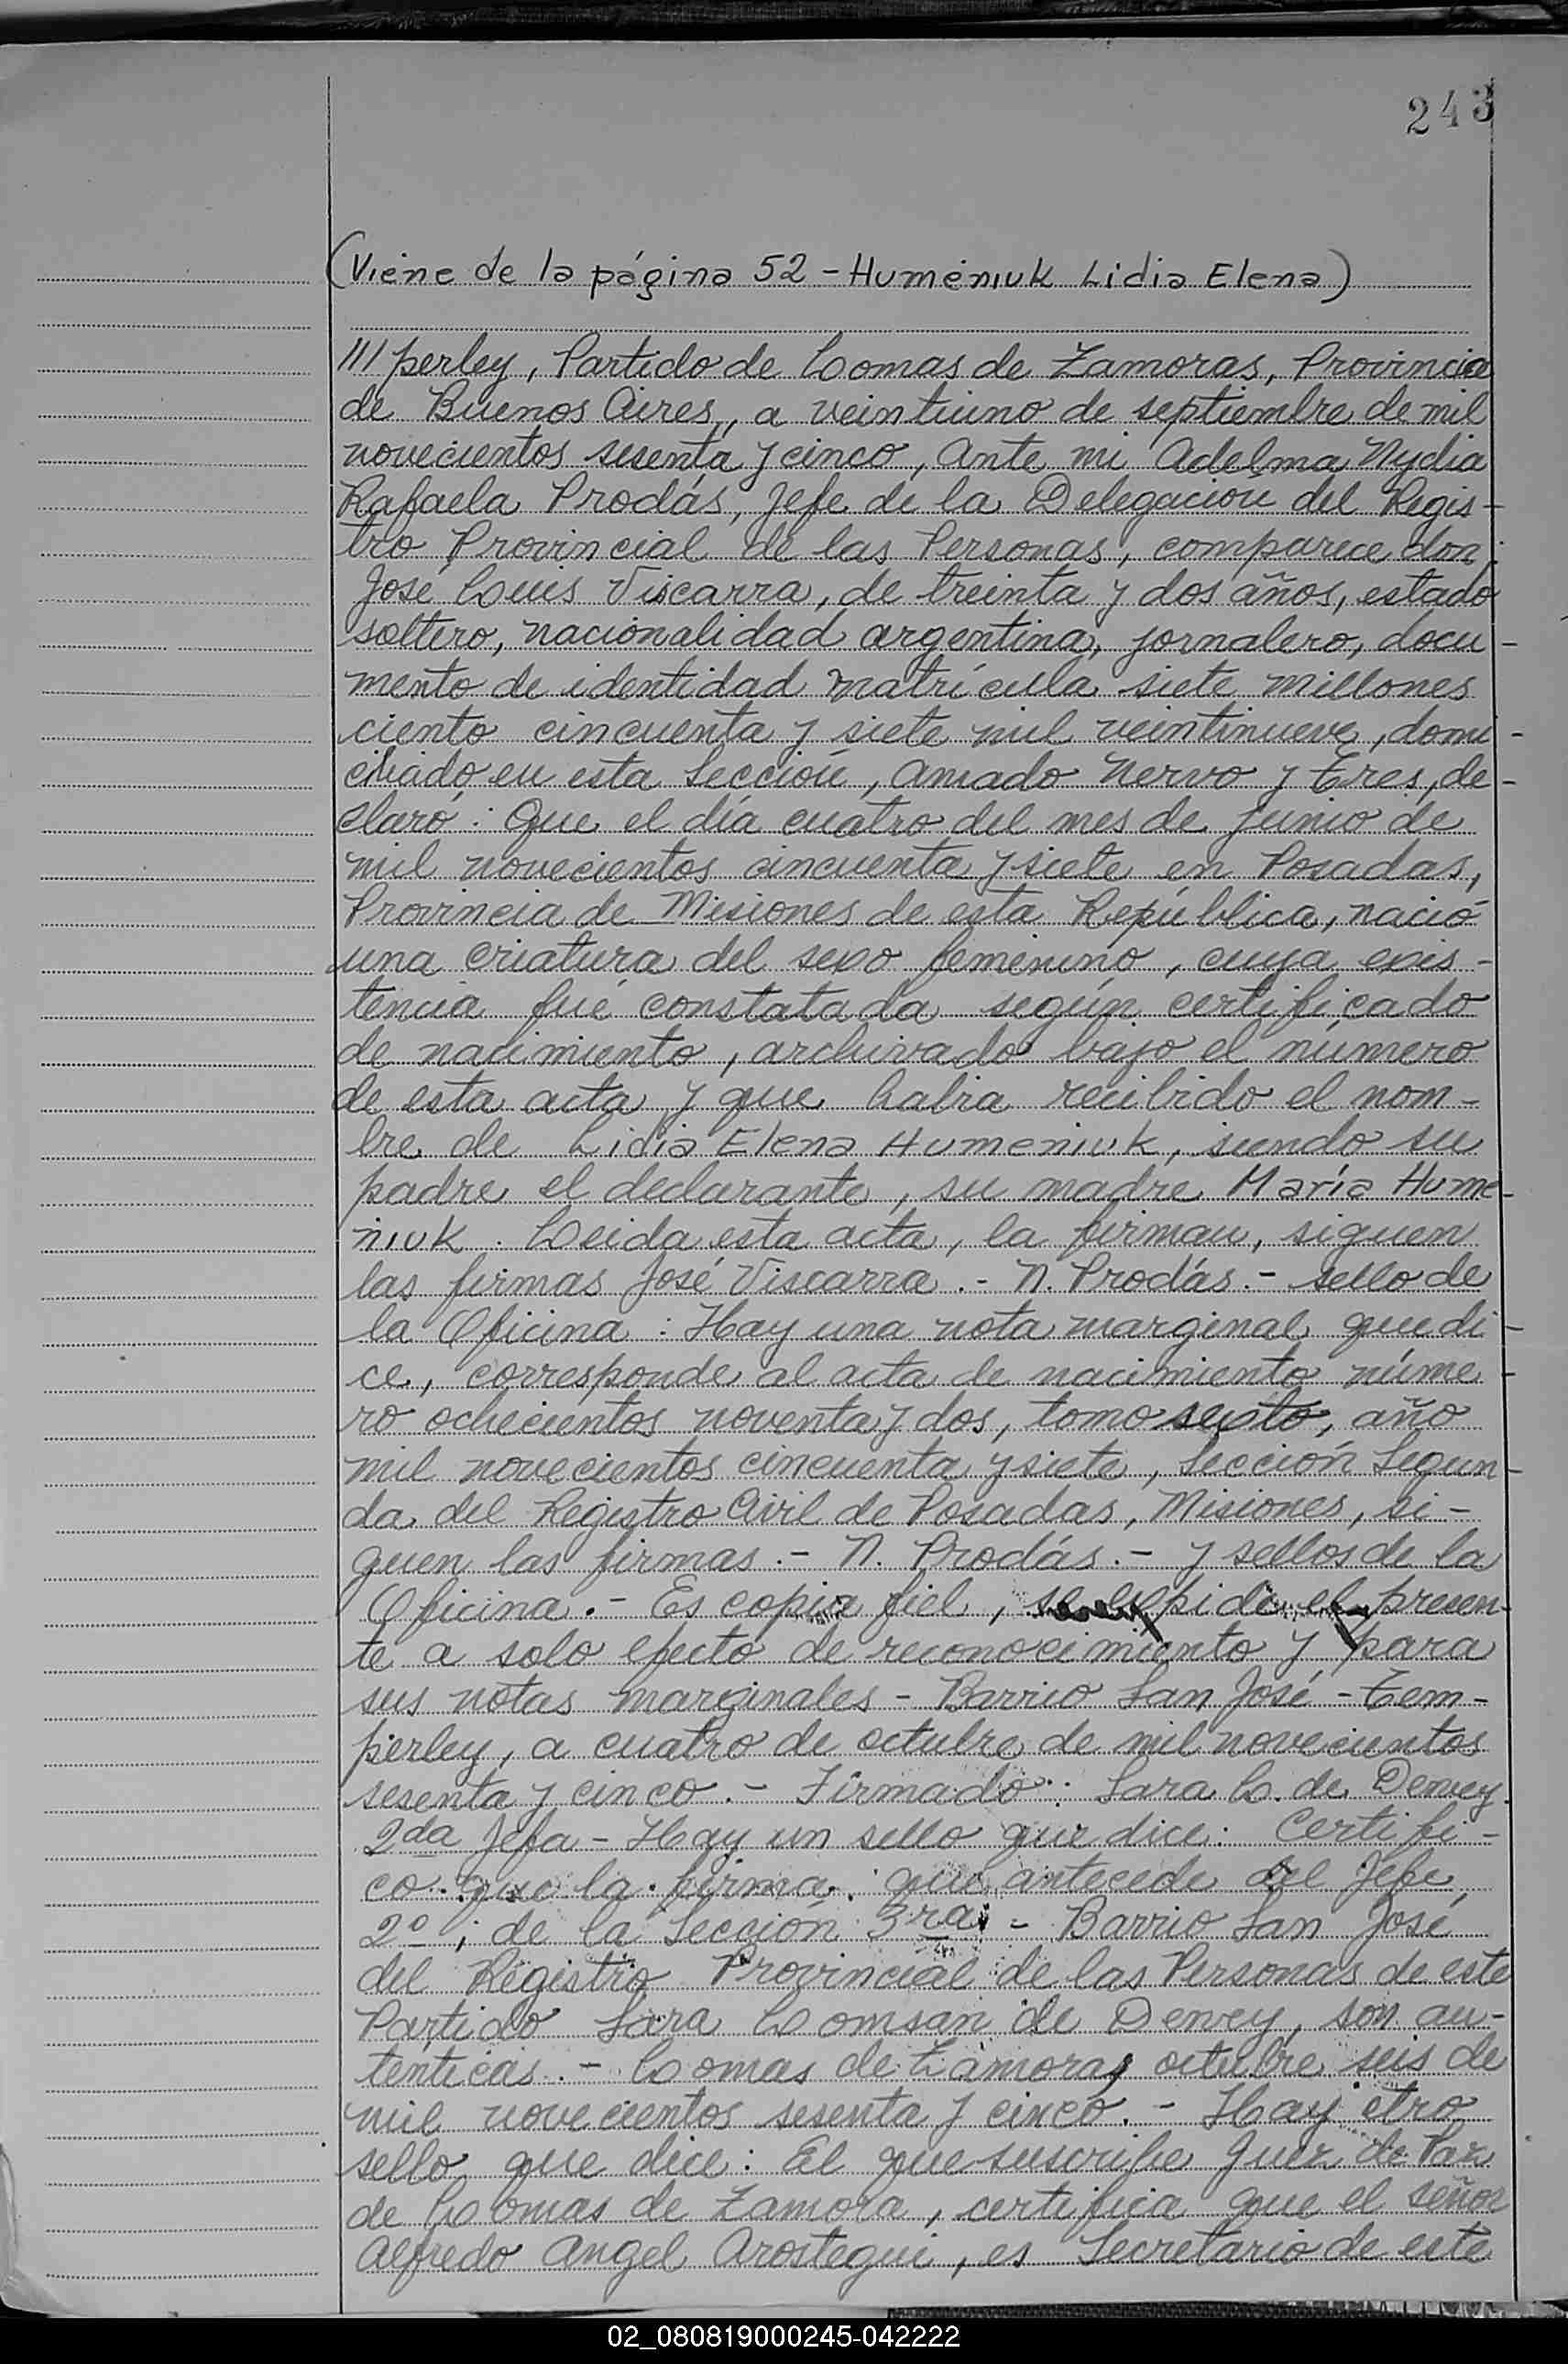 243
(Viene de la página 52 - Humeniuk Lidia Elena)
///perley, Partido de Lomas de Zamoras, Provincia
de Buenos Aires, a veintiuno de septiembre de mil
novecientos sesenta y cinco, Ante mi Adelma Nydia
Rafaela Prodás, Jefe de la Delegación del Regis-
tro Provincial de las Personas, comparece don
José Luis Viscarra, de treinta y dos años, estado
soltero, nacionalidad argentina, jornalero, docu-
mento de identidad matrícula siete millones
ciento cincuenta y siete mil veintinueve, domi-
ciliado en esta Sección, Amado Nervo y Tres, de-
claró: Que el día cuatro del mes de junio de
mil novecientos cincuenta y siete en Posadas,
Provincia de Misiones de esta República, nació
una criatura del sexo femenino, cuya exis-
tencia fué constatada según certificado
de nacimiento, archivado bajo el número
de esta acta y que habia recibido el nom-
bre de Lidia Elena Humeniuk, siendo su
padre el declarante, su madre María Hume-
niuk. Leida esta acta, la firman, siguen
las firmas José Viscarra.- N. Prodás.- sello de
la Oficina: Hay una nota marginal que di-
ce, corresponde al acta de nacimiento núme-
ro ochecientos noventa y dos, tomo sexto, año
mil novecientos cincuenta y siete, Sección Segun-
da del Registro Civil de Posadas, Misiones, si-
guen las firmas.- N. Prodás.- y sellos de la
Oficina.- Es copia fiel, se expide el presen-
te a solo efecto de reconocimiento y para
sus notas marginales - Barrio San José - Tem-
perley, a cuatro de octubre de mil novecientos
sesenta y cinco.- Firmado: Sara L. de Dewey.
2da Jefa - Hay un sello que dice: Certifi-
co que la firma que antecede del Jefe
2º, de la Sección 3ra - Barrio San José
del Registro Provincial de las Personas de este
Partido Sara Lomsan de Dewey, son au-
tenticas.- Lomas de Zamora, octubre seis de
mil novecientos sesenta y cinco.- Hay otro
sello que dice: El que suscribe Juez de Paz
de Lomas de Zamora, certifica que el señor
Alfredo Angel Arostegui, es Secretario de este
02_080819000245-042222